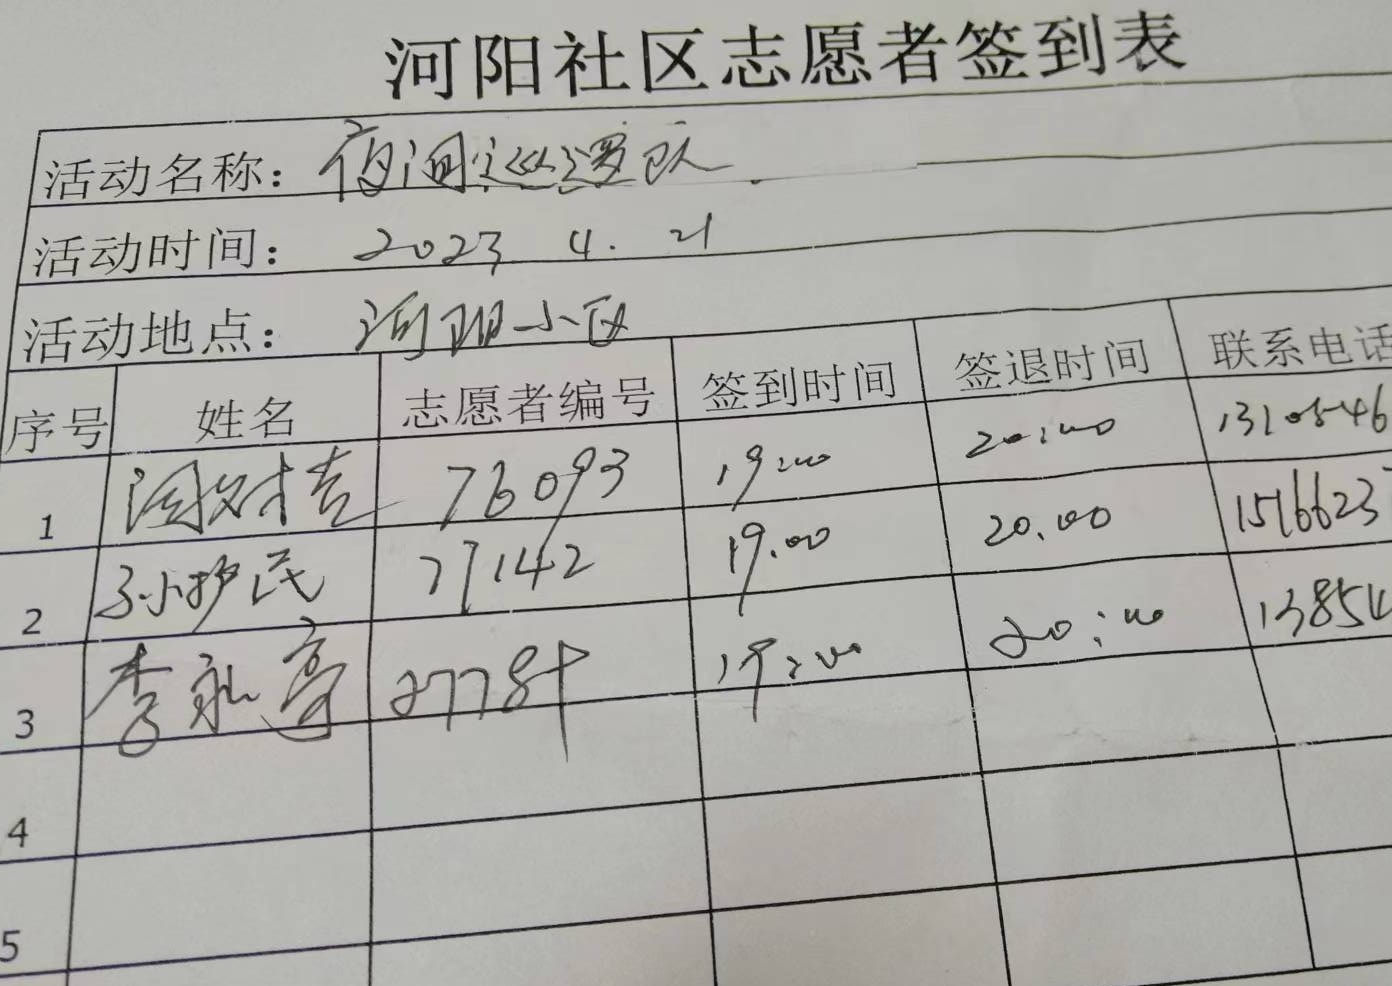 河阳社区志愿者签到表
活动名称：夜间巡逻队
活动时间： 2023 4. 21
活动地点： 河阳小区
序号 姓名 志愿者编号 签到时间 签退时间 联系电话
1 76093 19:00 20:00 1310546
2 孙护民 77142 19.00 20.00 1516623
3 李永亭 27784 19:00 20:00 13854
4
5